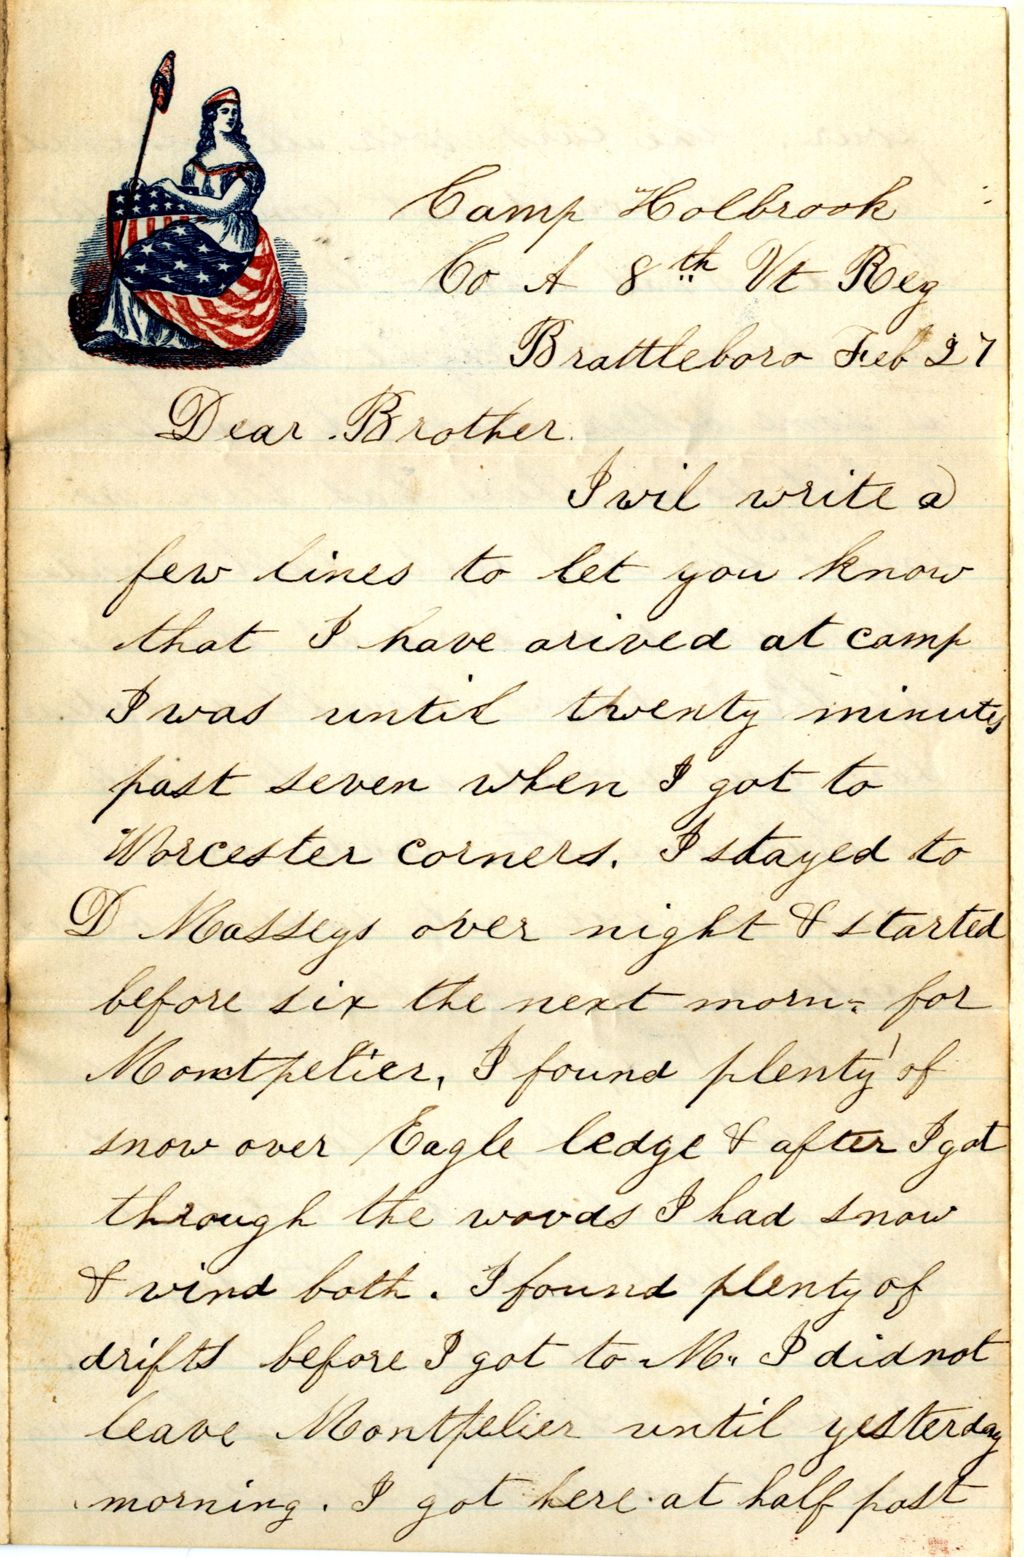 Camp Holbrook
Co A 8th Vt Reg
Brattleboro Feb 27
Dear Brother.
I wil write a
few lines to let you know
that I have arived at camp
I was until twenty minutes
past seven when I got to
Worcester corners. I stayed to
D Masseys over night & started
before six the next morn. for
Montpelier, I found plenty of
snow over Eagle ledge & after I got
through the woods I had snow
& wind both. I found plenty of
drifts before I got to M. I did not
leave Montpelier until yesterday
morning. I got here at half past